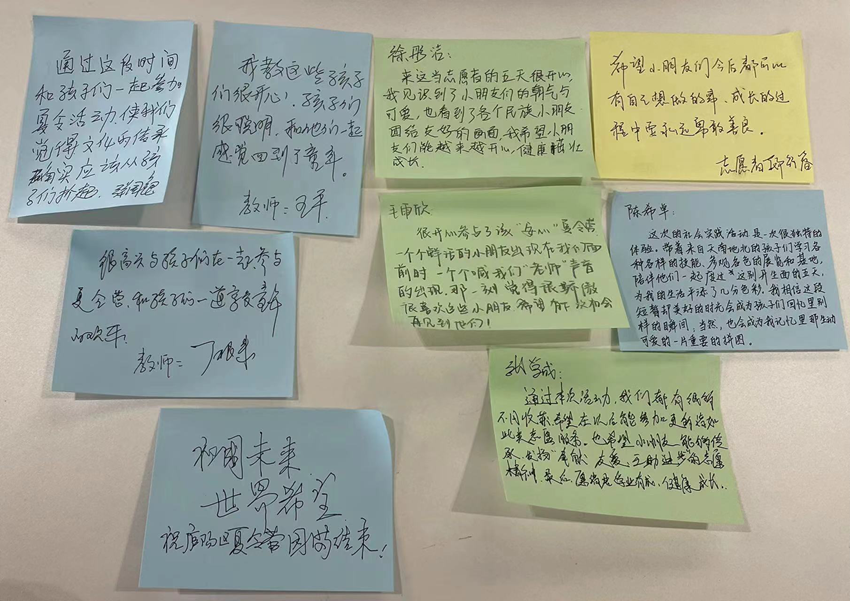 通过这段时间
和孩子们一起参加
夏令活动,使我们
觉得文化的传承
确实应该从孩
子们抓起.
我教这些孩子
们很开心!孩子们
很聪明,和他们一起
感觉回到了童年。
教师:王平
徐彤洁:
来这当志愿者的五天很开心,
我见识到了小朋友们的朝气与
可爱,也看到了各个民族小朋友
团结友好的画面,我希望小朋
友们能越来越开心,健康茁壮
成长.
希望小朋友们今后都可以
有自己想做的事、成长的过
程中要永远勇敢善良。
志愿者
很高兴与孩子们在一起参与
夏令营,和孩子们一道享受童年
的欢乐.
教师:丁
王雨欣
很开心参与了该“每心”夏令营
一个个鲜活的小朋友出现在我们面
前时 一个个喊我们“老师”声音
的出现 那一刻 觉得很骄傲
很喜欢这些小朋友 希望有机会
再见到他们!
陈希卓:
这次的社会实践活动是一次很独特的
体验。带着来自天南地北的孩子们学习各
种各样的技能、参观各色的展馆和基地,
陪伴他们一起度过这别开生面的五天,
为我的生活平添了几分色彩。我相信这段
短暂却美好的时光会成为孩子们回忆里别
样的瞬间,当然,也会成为我记忆里那生动
可爱的一片重要的拼图。
张学成:
通过本次活动,我们都有很多
不同收获,希望在以后能参加更多诸如
此类志愿服务。也希望小朋友能够传
承、发扬“奉献、友爱、互助、进步”的志愿
精神,最后,愿诸君学业有成,健康成长.
祖国未来
世界希望
祝夏令营圆满结束!